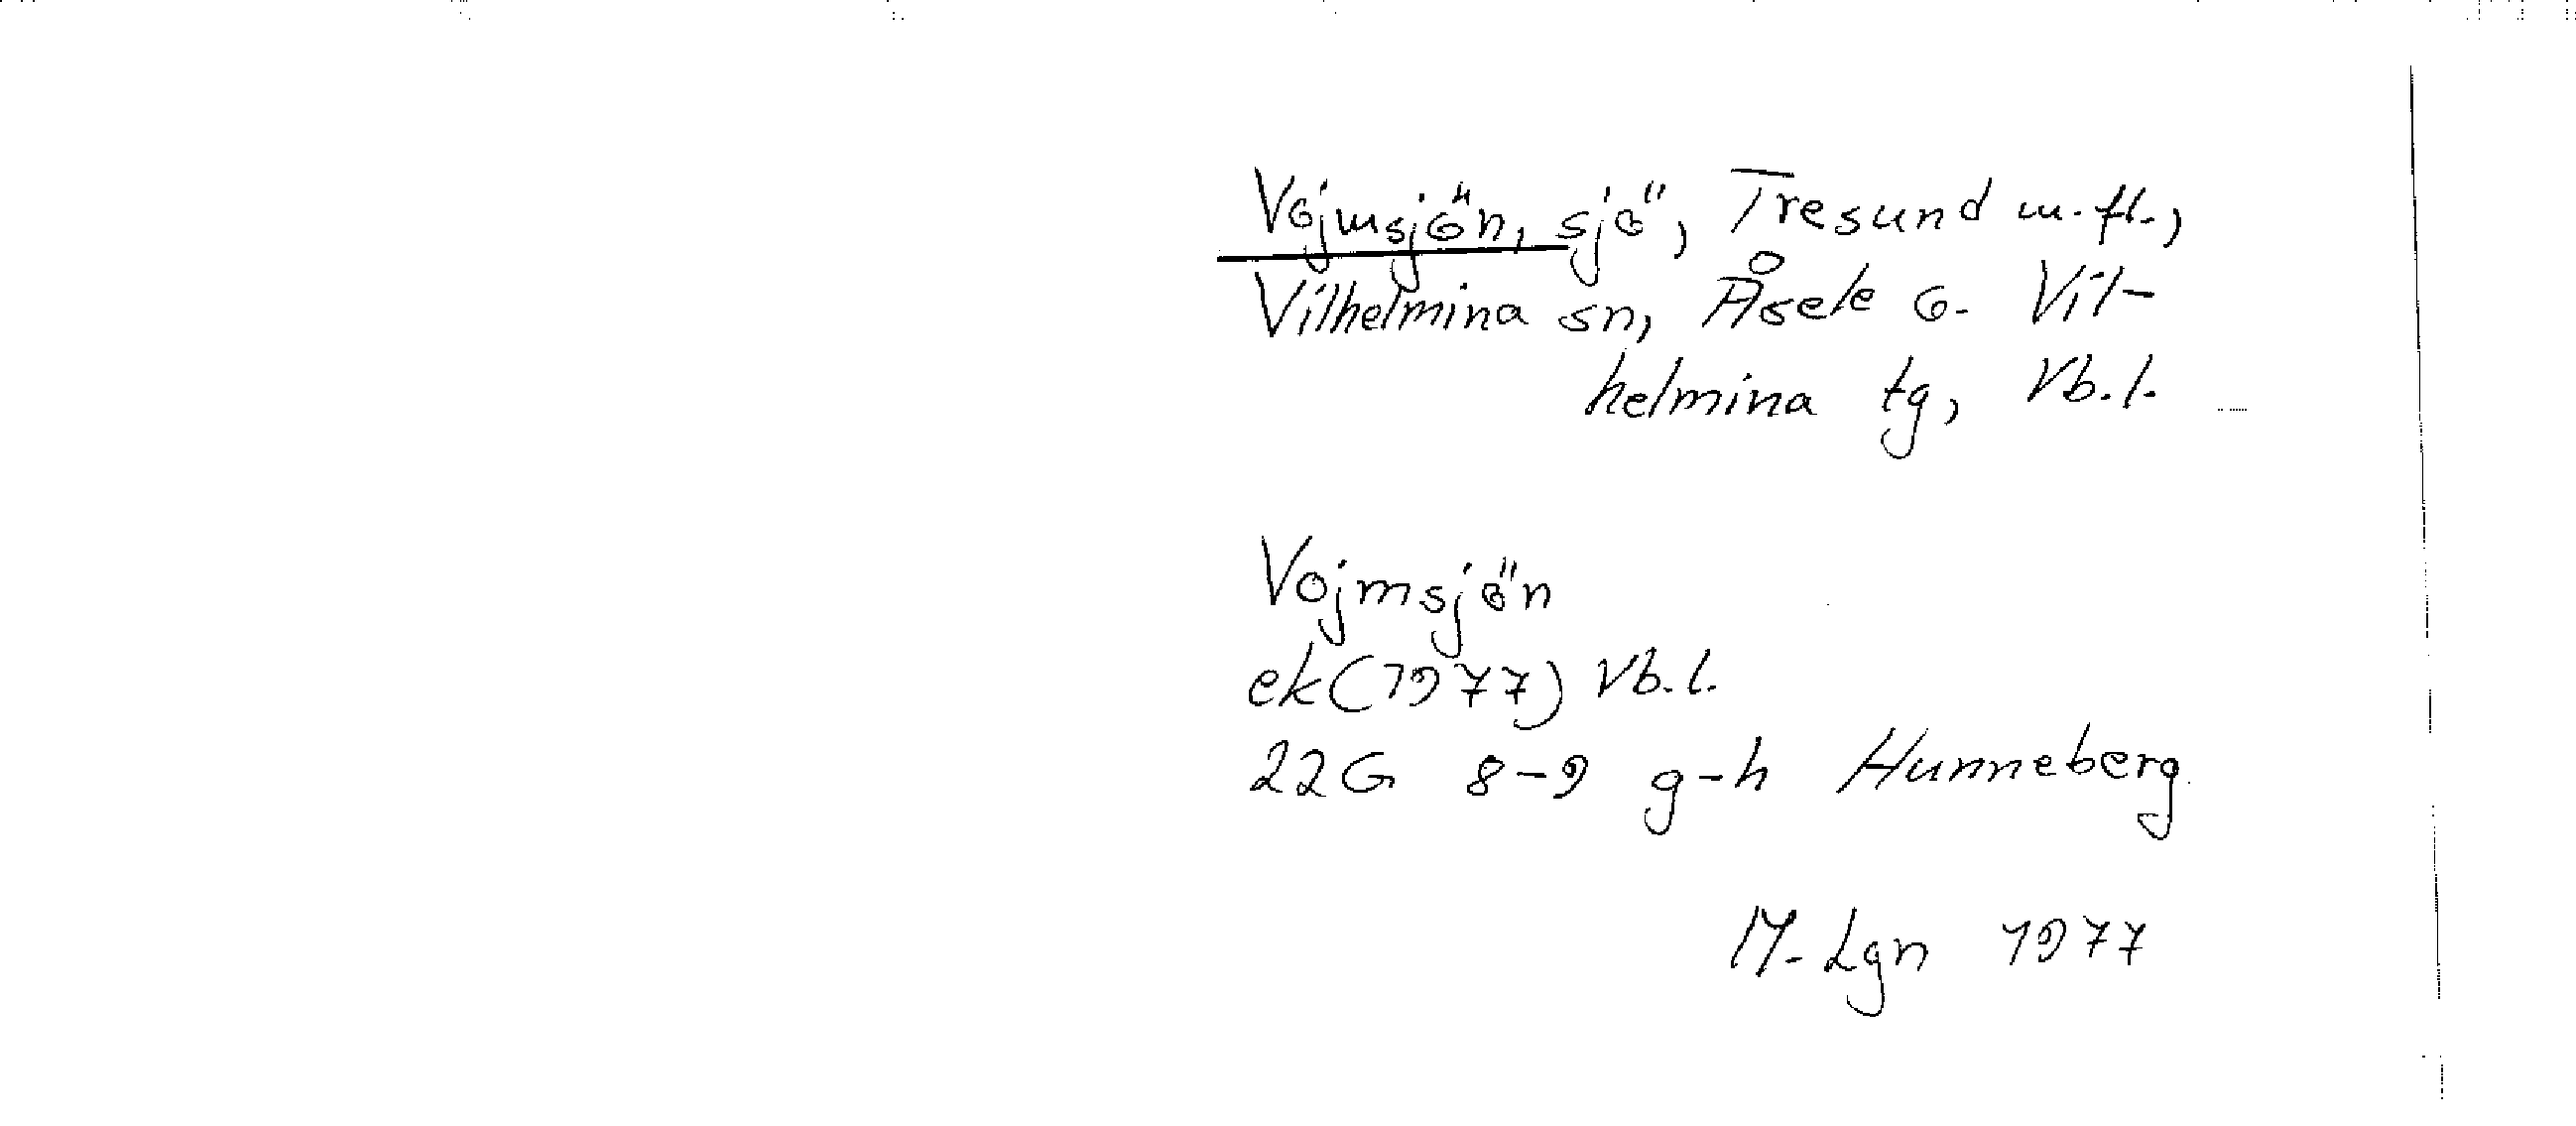 Vojmsjön, sjö, Tresund m. fl.,
Vilhelmina sn, Åsele o. Vil-
helmina tg, Vb. l.
Vojmsjön
ek (1977) Vb. l.
22G 8-9 g-h Hunneberg
M. Lgn 1977